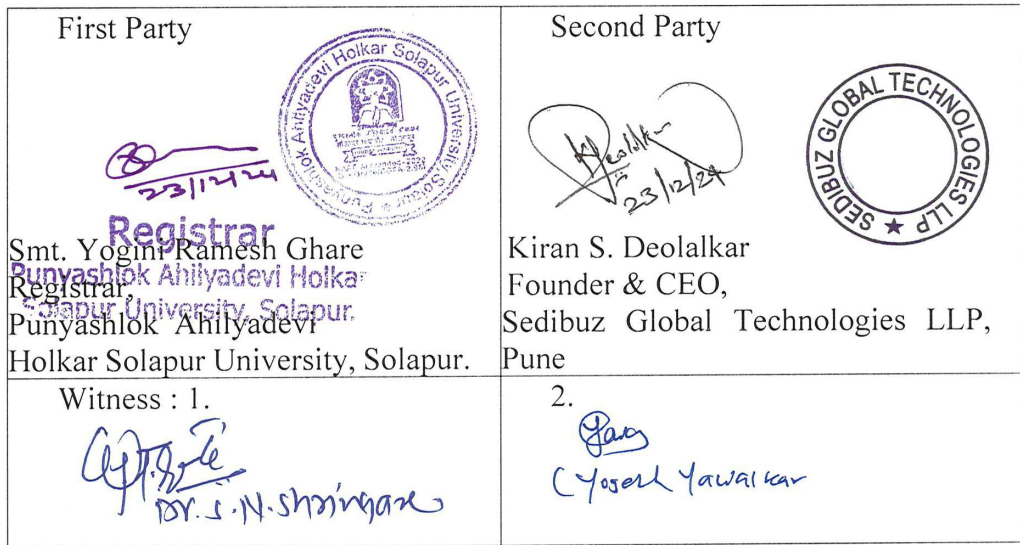 First Party
Punyashlok Ahilyadevi Holkar Solapur University Solapur
23/12/24
Registrar
Punyashlok Ahilyadevi Holkar
Solapur University, Solapur.
Smt. Yogini Ramesh Ghare
Registrar,
Punyashlok Ahilyadevi
Holkar Solapur University, Solapur.
Second Party
KDeolalkar
23/12/24
SEDIBUZ GLOBAL TECHNOLOGIES LLP
Kiran S. Deolalkar
Founder & CEO,
Sedibuz Global Technologies LLP,
Pune
Witness : 1.
Dr. S. N. Shringare
2.
(Yogesh Yawalkar